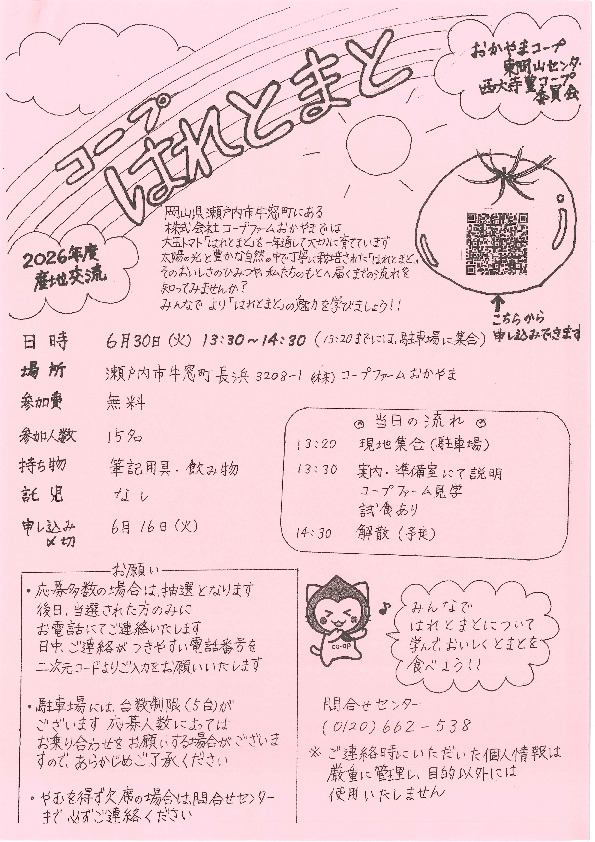 おかやまコープ
東岡山センター
西大寺豊コープ
委員会
コープ
はれとまと
2026年度
産地交流
岡山県瀬戸内市牛窓町にある
株式会社コープファームおかやまでは
大玉トマト「はれとまと」を一年通して大切に育てています
太陽の光と豊かな自然の中で丁寧に栽培された「はれとまと」
そのおいしさのひみつや、私たちのもとへ届くまでの流れを
知ってみませんか?
みんなで より「はれとまと」の魅力を学びましょう!!
こちらから
申し込みできます
日時 6月30日(火) 13:30~14:30 (13:20までには、駐車場に集合)
場所 瀬戸内市牛窓町長浜3208-1 (株)コープファームおかやま
参加費 無料
参加人数 15名
持ち物 筆記用具・飲み物
託児 なし
申し込み
〆切 6月16日(火)
◎ 当日の流れ ◎
13:20 現地集合(駐車場)
13:30 案内・準備室にて説明
コープファーム見学
試食あり
14:30 解散(予定)
お願い
・応募多数の場合は、抽選となります
後日、当選された方のみに
お電話にてご連絡いたします
日中、ご連絡がつきやすい電話番号を
二次元コードよりご入力をお願いいたします
・駐車場には、台数制限(5台)が
ございます 応募人数によっては
お乗り合わせをお願いする場合がございま
すので、あらかじめご了承ください
・やむを得ず欠席の場合は、問合せセンター
まで必ずご連絡ください
co-op
♪
みんなで
はれとまとについて
学んで、おいしくとまとを
食べよう!!
問合せセンター
(0120)662-538
※ ご連絡時にいただいた個人情報は
厳重に管理し、目的以外には
使用いたしません